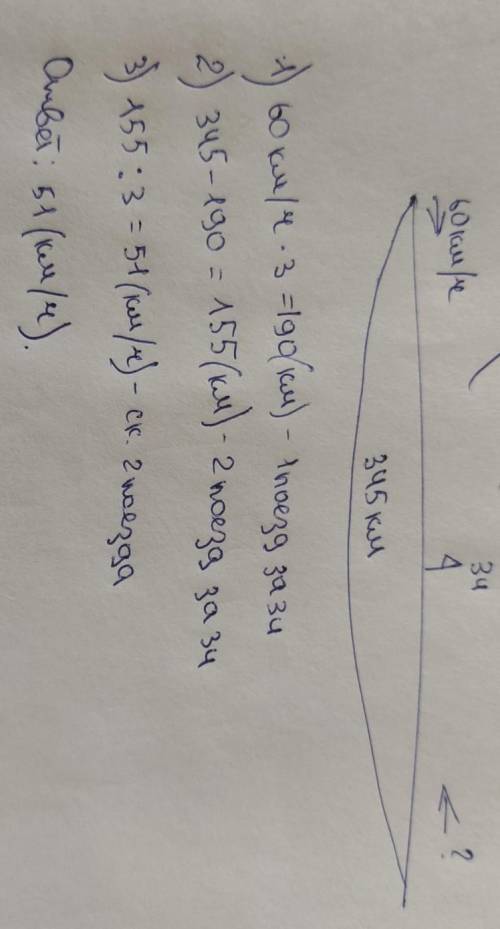 60км/ч
3ч
?
345км
1) 60км/ч · 3 = 190(км) - 1поезд за 3ч
2) 345 - 190 = 155(км) - 2 поезд за 3ч
3) 155 : 3 = 51(км/ч) - ск. 2 поезда
Ответ: 51(км/ч).